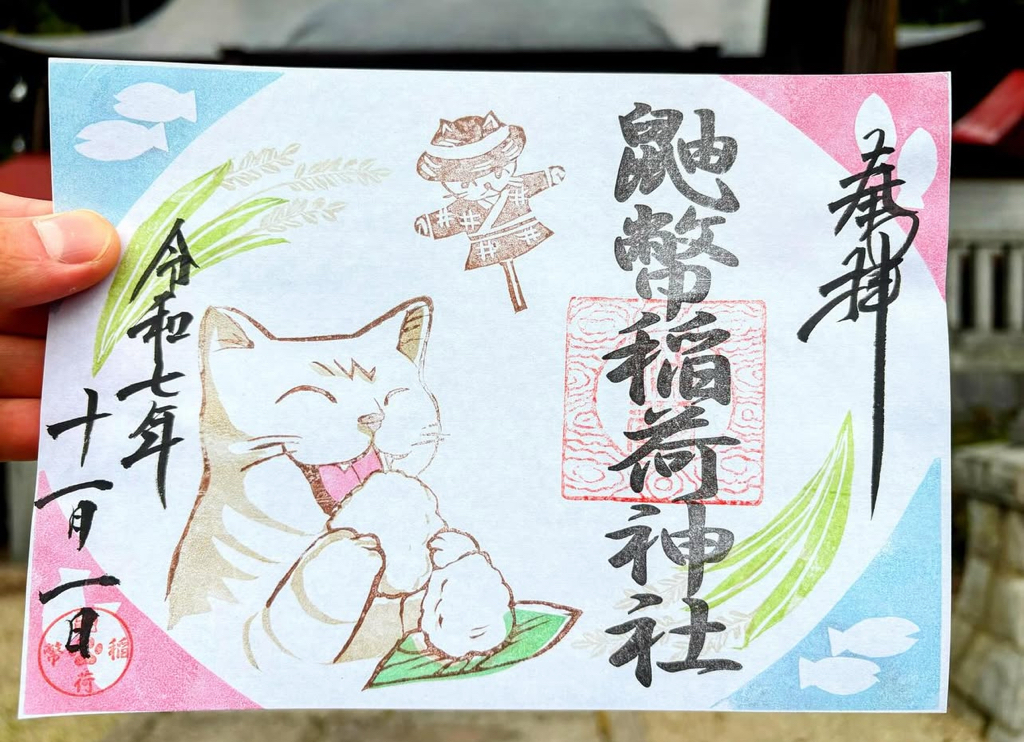 奉拝
鼬幣稲荷神社
令和七年
十一月一日
幣稲荷